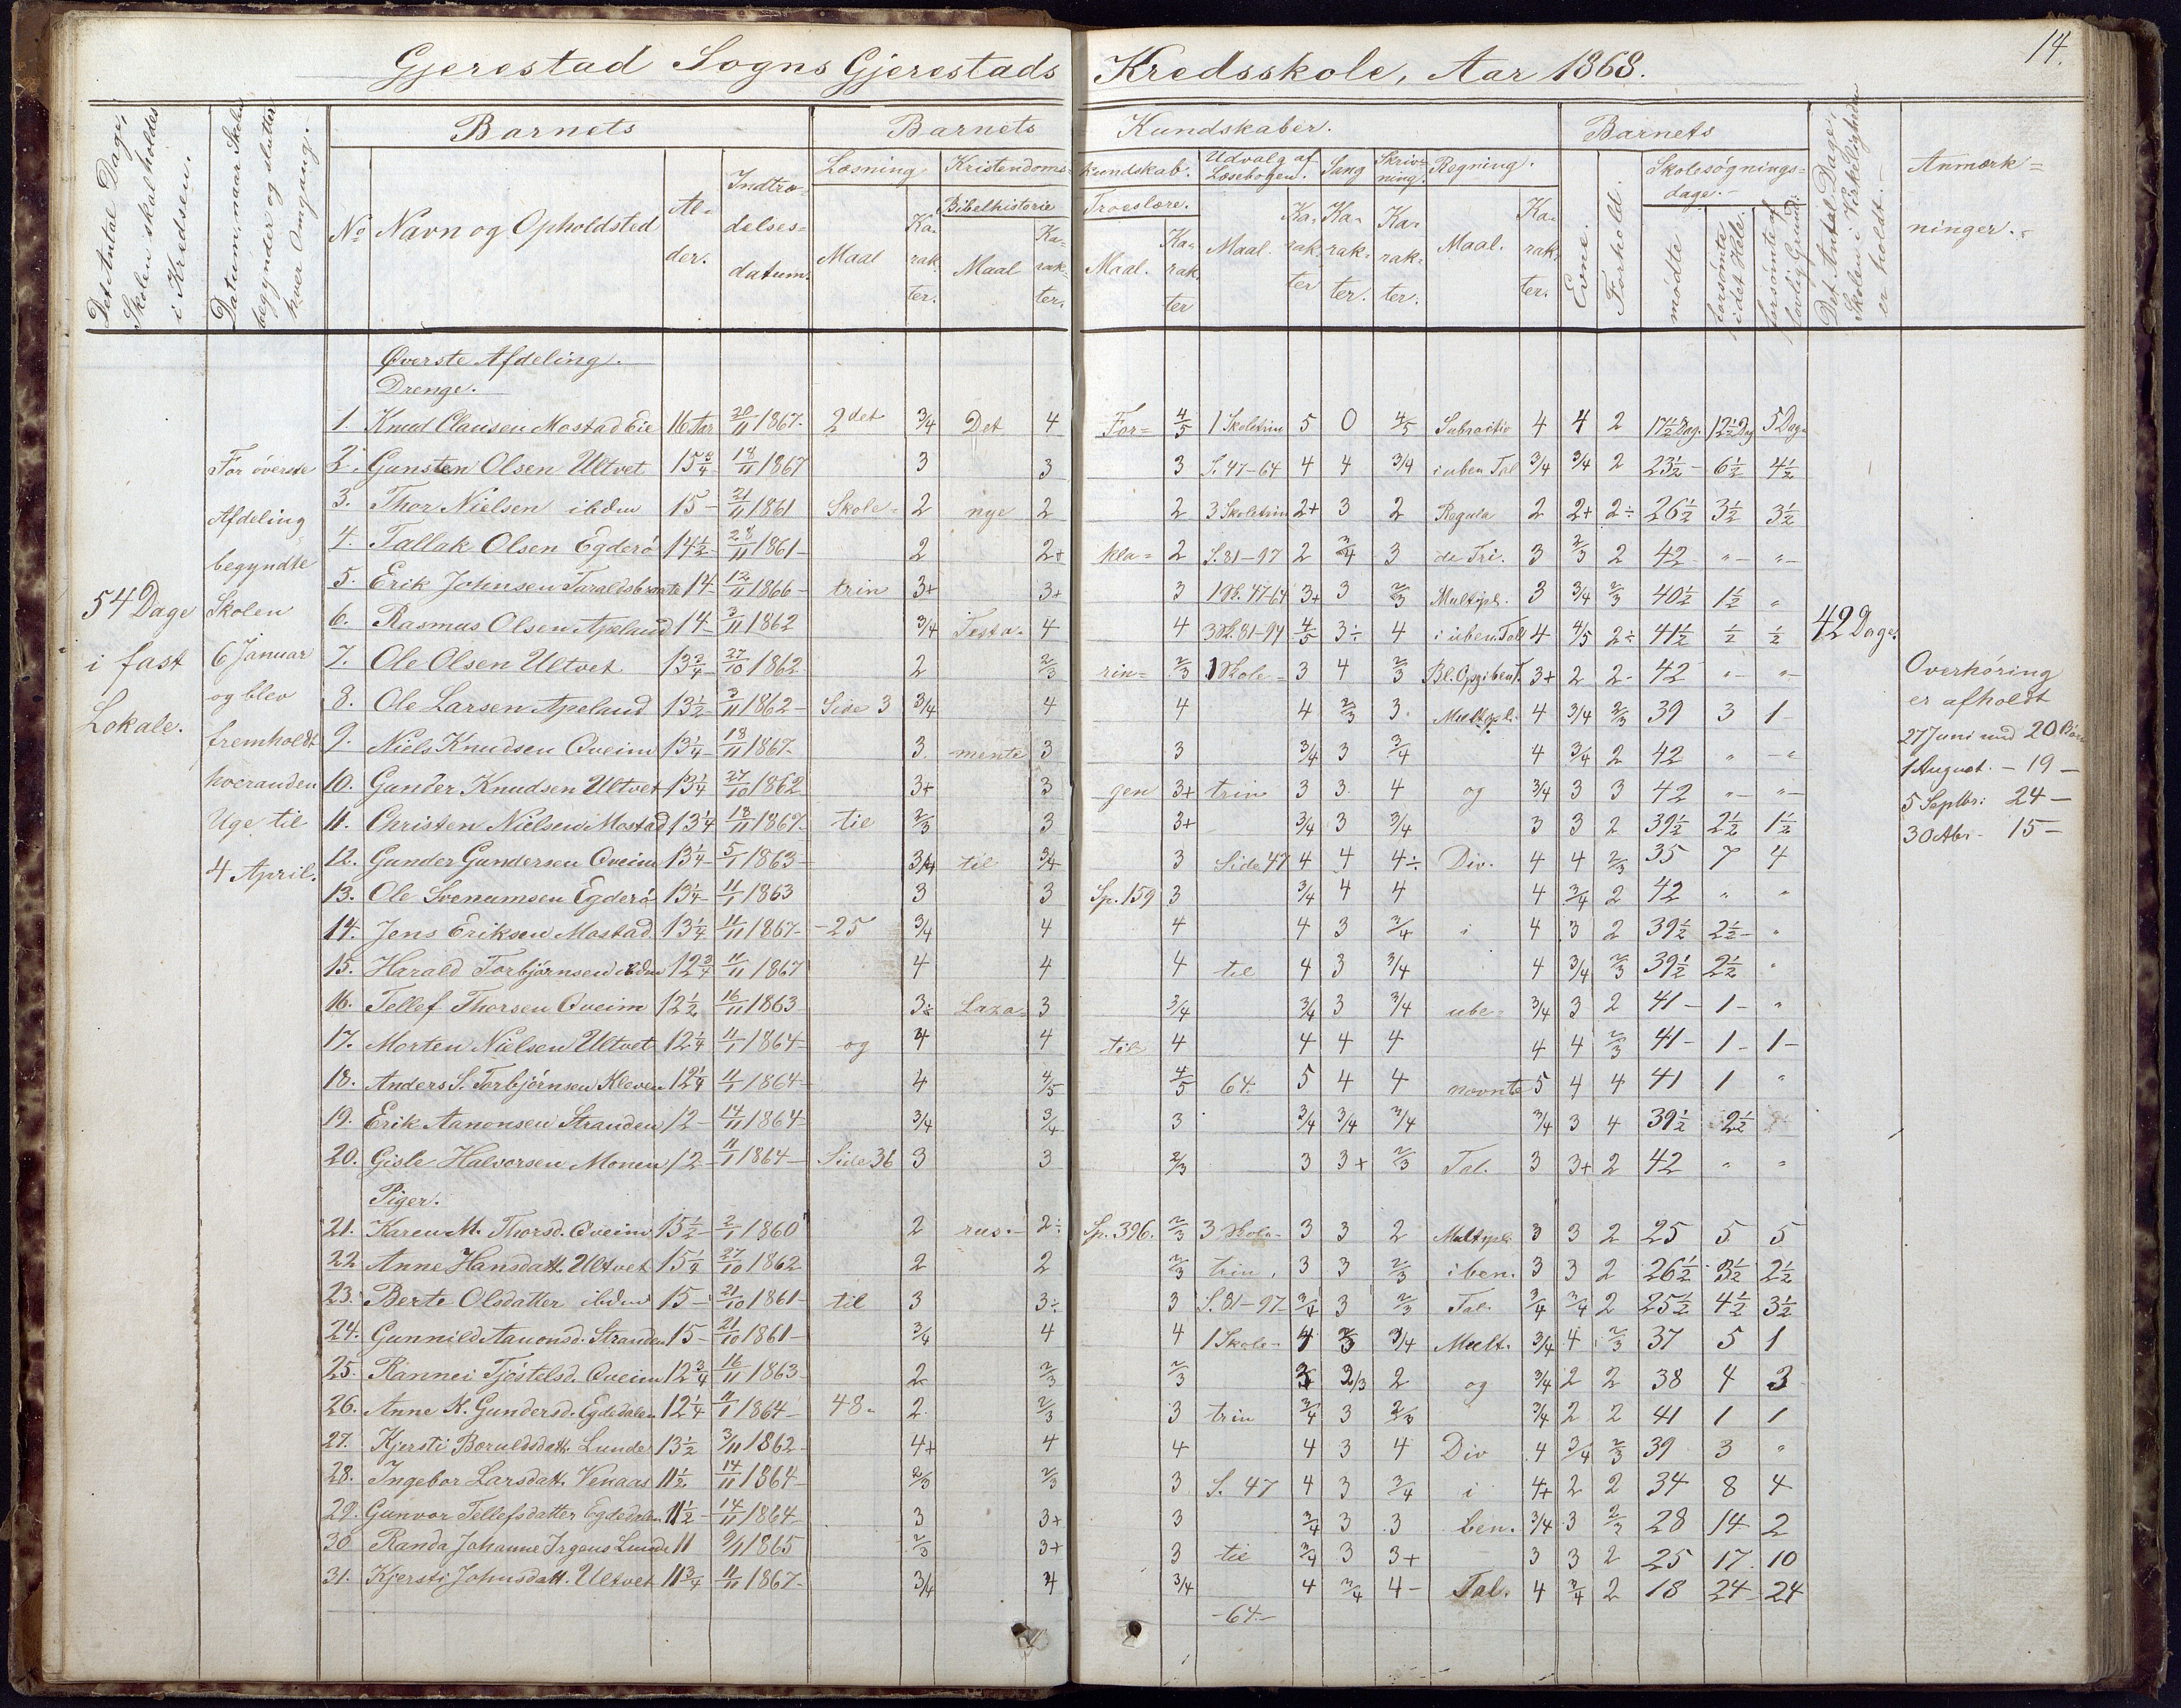 14.
Gjerestad Sogns Gjerestads Kredsskole, Aar 1868.
Det Antal Dage, Skolen skal holdes i Kredsen.
Datum, naar Skolen begynder og slutter hver Omgang.
Barnets
Barnets Kundskaber.
Barnets
Det Antal Dage, Skolen i Virkeligheden er holdt.
Anmærkninger.
No Navn og Opholdsted Alder. Indtrædelsesdatum.
Læsning Kristendomskundskab. Udvalg af Læsebogen. Sang Skrivning. Regning.
Bibelhistorie Troeslære.
Maal Karakter. Maal Karakter. Maal. Karakter Maal. Karakter Karakter. Karakter. Maal. Karakter.
Evne. Forhold. Skolesøgningsdage. mødte forsømte i det Hele. forsømte af lovlig Grund.
54 Dage i fast Lokale.
For øverste Afdeling begyndte Skolen 6 Januar og blev fremholdt hveranden Uge til 4 April.
Øverste Afdeling.
Drenge.
1. Knud Clausen Mostad Eie 16 Aar 20/11 1867. 2det 3/4 Det 4 For= 4/5 1 Skoletrin 5 0 4/5 Subractio 4 4 2 17½ Dag. 12½ Dag 5 Dage
2. Gunsten Olsen Ultvet 15¾ 18/11 1867 3 3 3 S. 47-64 4 4 3/4 i uben Tal 3/4 3/4 2 23½ - 6½ 4½
3. Thor Nielsen ibdm 15 - 21/11 1861 Skole= 2 nye 2 2 3 Skoletrin 2+ 3 2 Regula 2 2+ 2÷ 26½ 3½ 3½
4. Tallak Olsen Egderø 14½ 28/11 1861 - 2 2+ kla= 2 S. 81-97 2 3/4 3 de Tri. 3 2/3 2 42 - "- "-
5. Erik Johnsen Taraldsbraate 14 - 12/11 1866 - trin 3+ 3+ 3 1 Sk. 47-64 3+ 3 2/3 Multipl. 3 3/4 2/3 40½ 1½ "
6. Rasmus Olsen Apeland 14 - 3/11 1862 3/4 Testa= 4 4 3 Sk. 81-94 4/5 3÷ 4 i uben. Tal 4 4/5 2÷ 41½ ½ ½
7. Ole Olsen Ultvet 13¾ 27/10 1862 2 2/3 rin= 2/3 1 Skole= 3 4 2/3 Bl. Opg. i ben T. 3+ 2 2- 42 "- "-
8. Ole Larsen Apeland 13½ 3/11 1862 - Side 3 3/4 4 4 4 2/3 3. Multipl. 4 3/4 2/3 39 3 1-
9. Niels Knudsen Qveim 13¼ 18/11 1867. 3. mente 3 3 3/4 3 3/4 4 3/4 2 42 " -"
10. Gunder Knudsen Ultvet 13¼ 27/10 1862 3+ 3 gen 3+ trin 3 3. 4 og 3/4 3 3 42 "- "-
11. Christen Nielsen Mostad 13¼ 18/11 1867. til 2/3 3 3+ 3/4 3 3/4 3 3 2 39½ 2½ 1½
12. Gunder Gundersen Qveim 13¼ - 5/1 1863 - 3/4 til 3/4 3 Side 47 4 4 4÷ Div. 4 4 2/3 35 7 4
13. Ole Svenumsen Egderø 13¼ - 11/1 1863 3 3 Sp. 159 3 3/4 4 4 4 3/4 2 42 " "
14. Jens Eriksen Mostad 13¼ 11/11 1867. -25 3/4 4 4 4 3 3/4 i 4 3 2 39½ 2½ - "
15. Harald Torbjørnsen ibdm 12¾ 11/11 1867 4 4 4 til 4 3 3/4 4 3/4 2/3 39½ 2½ "
16. Tellef Thorsen Qveim 12½ 16/11 1863 - 3÷ Laza= 3 3/4 3/4 3 3/4 ube= 3/4 3 2 41 - 1 - "
17. Morten Nielsen Ultvet 12¼ 11/1 1864 - og 4 4 til 4 4 4 4 4 4 2/3 41 - 1 - 1 -
18. Anders S. Torbjørnsen Kleven 12¼ 11/1 1864 - 4 4/5 4/5 64. 5 4 4 nævnte 5 4 4 41 1 "
19. Erik Aanonsen Stranden 12 - 14/11 1864 - 3/4 3/4 3 3/4 3/4 3/4 3/4 3 4 39½ 2½
20. Gisle Halvorsen Monen 12 - 11/1 1864 - Side 36 3 3 2/3 3 3+ 2/3 Tal. 3 3+ 2 42 " "
Piger.
21. Karen M. Thorsd. Qveim 15½ 2/1 1860 2 rus.- 2÷ Sp. 396. 2/3 3 Skole- 3 3 2 Multipl. 3 3 2 25 5 5
22 Anne Hansdatt. Ultvet 15¼ 27/10 1862 2 2 2/3 trin. 3 3 2/3 i ben. 3 3 2 26½ 3½ 2½
23. Berte Olsdatter ibdm 15 - 21/10 1861 - til 3 3÷ 3 S. 81-97 3/4 3 2/3 Tal. 3/4 3/4 2 25½ 4½ 3½
24. Gunnild Aanonsd. Stranden 15 - 21/10 1861 - 3/4 4 4 1 Skole- 4 2/3 3/4 Mult. 3/4 4 2/3 37 5 1
25. Rannei Tjøstelsd. Qveim 12¾ 16/11 1863 2 2/3 2/3 3 2/3 2 og 3/4 2 2 38 4 3
26. Anne K. Gundersd. Egdedalen 12¼ 11/1 1864 - 48 - 2. 2/3 3 trin 3/4 3 2/3 3/4 2 2 41 1 1
27. Kjersti Boruldsdatt. Lunde 13½ 3/11 1862 - 4+ 4 4 4 3 4 Div 4 3/4 2/3 39 3 "
28. Ingebor Larsdatt. Venaas 11½ 14/11 1864 - 2/3 2/3 3 S. 47 4 3 3/4 i 4+ 2 2 34 8 4
29. Gunvor Tellefsdatter Egdedalen 11½ - 14/11 1864 - 3 3+ 3 3/4 3 3 ben. 3/4 3 2/3 28 14 2
30. Randa Johanne Irgens Lunde 11 9/11 1865 2/3 3+ 3 til 3/4 3 3+ 3 3 2 25 17. 10
31. Kjersti Johnsdatt. Ultvet 11¾ 11/11 1867 - 3/4 4 3/4 4 3/4 4 - Tal. 4 3/4 2 18 24 - 24
-64-
42 Dage.
Overhøring
er afholdt
27 Juni med 20 Børn
1 August. - 19 -
5 Septbr: 24 -
3 - 15 -